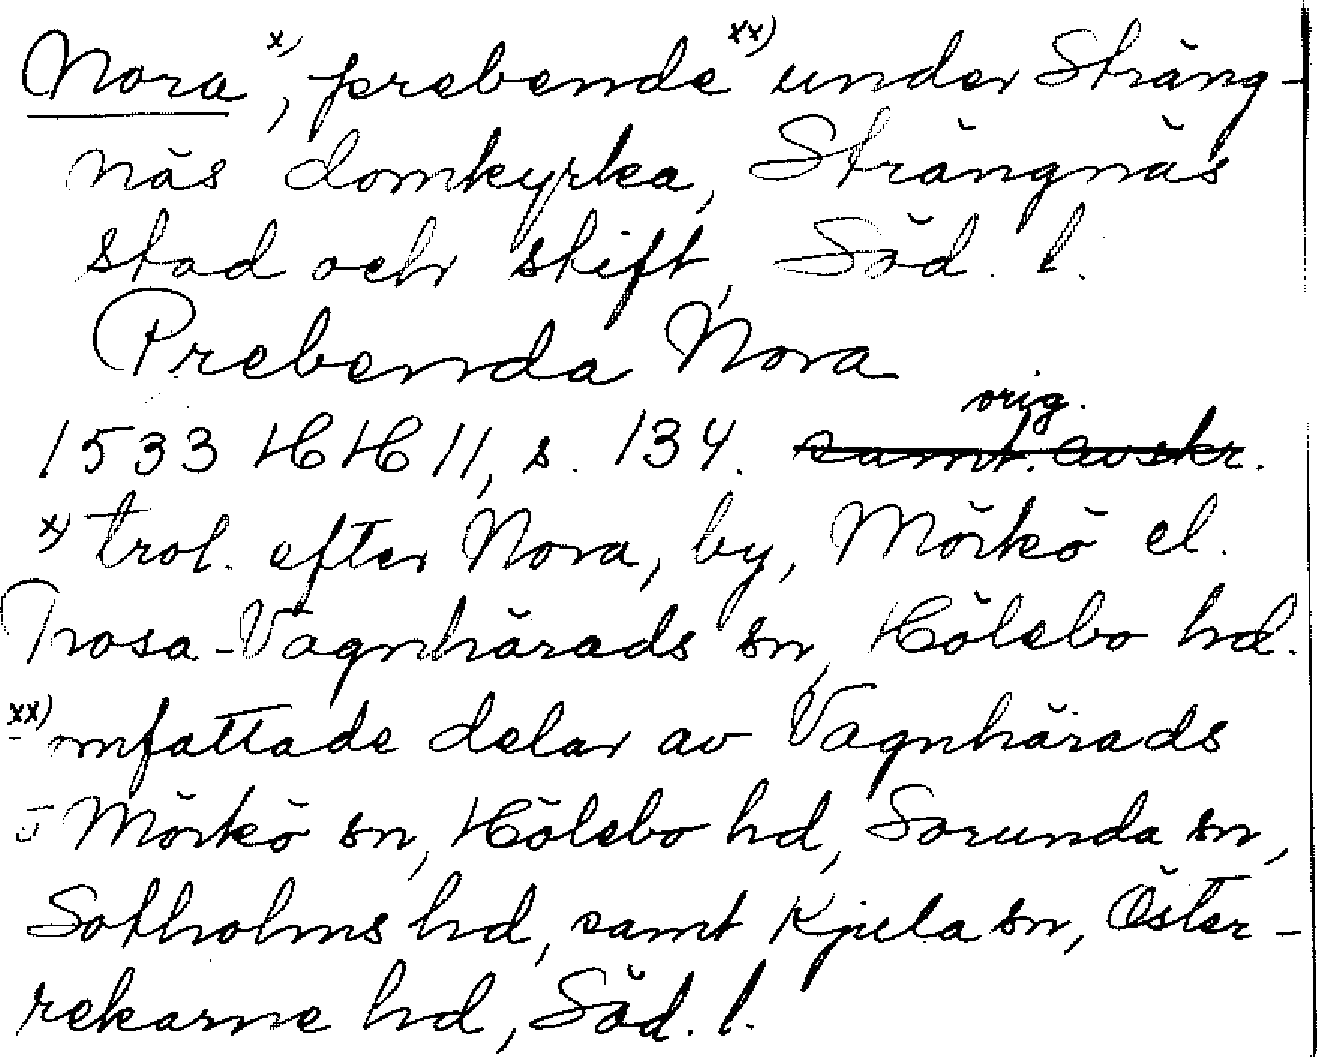 Nora x), prebende xx) under Sträng-
näs domkyrka, Strängnäs
stad och stift, Söd. l.
Prebenda Nora
orig.
1533 HH 11, s. 134. samt. avskr.
x) trol. efter Nora, by, Mörkö el.
Trosa-Vagnhärads sn, Hölebo hd.
xx) omfattade delar av Vagnhärads
o Mörkö sn, Hölebo hd, Sorunda sn,
Sotholms hd, samt Kjula sn, Öster-
rekarne hd, Söd. l.